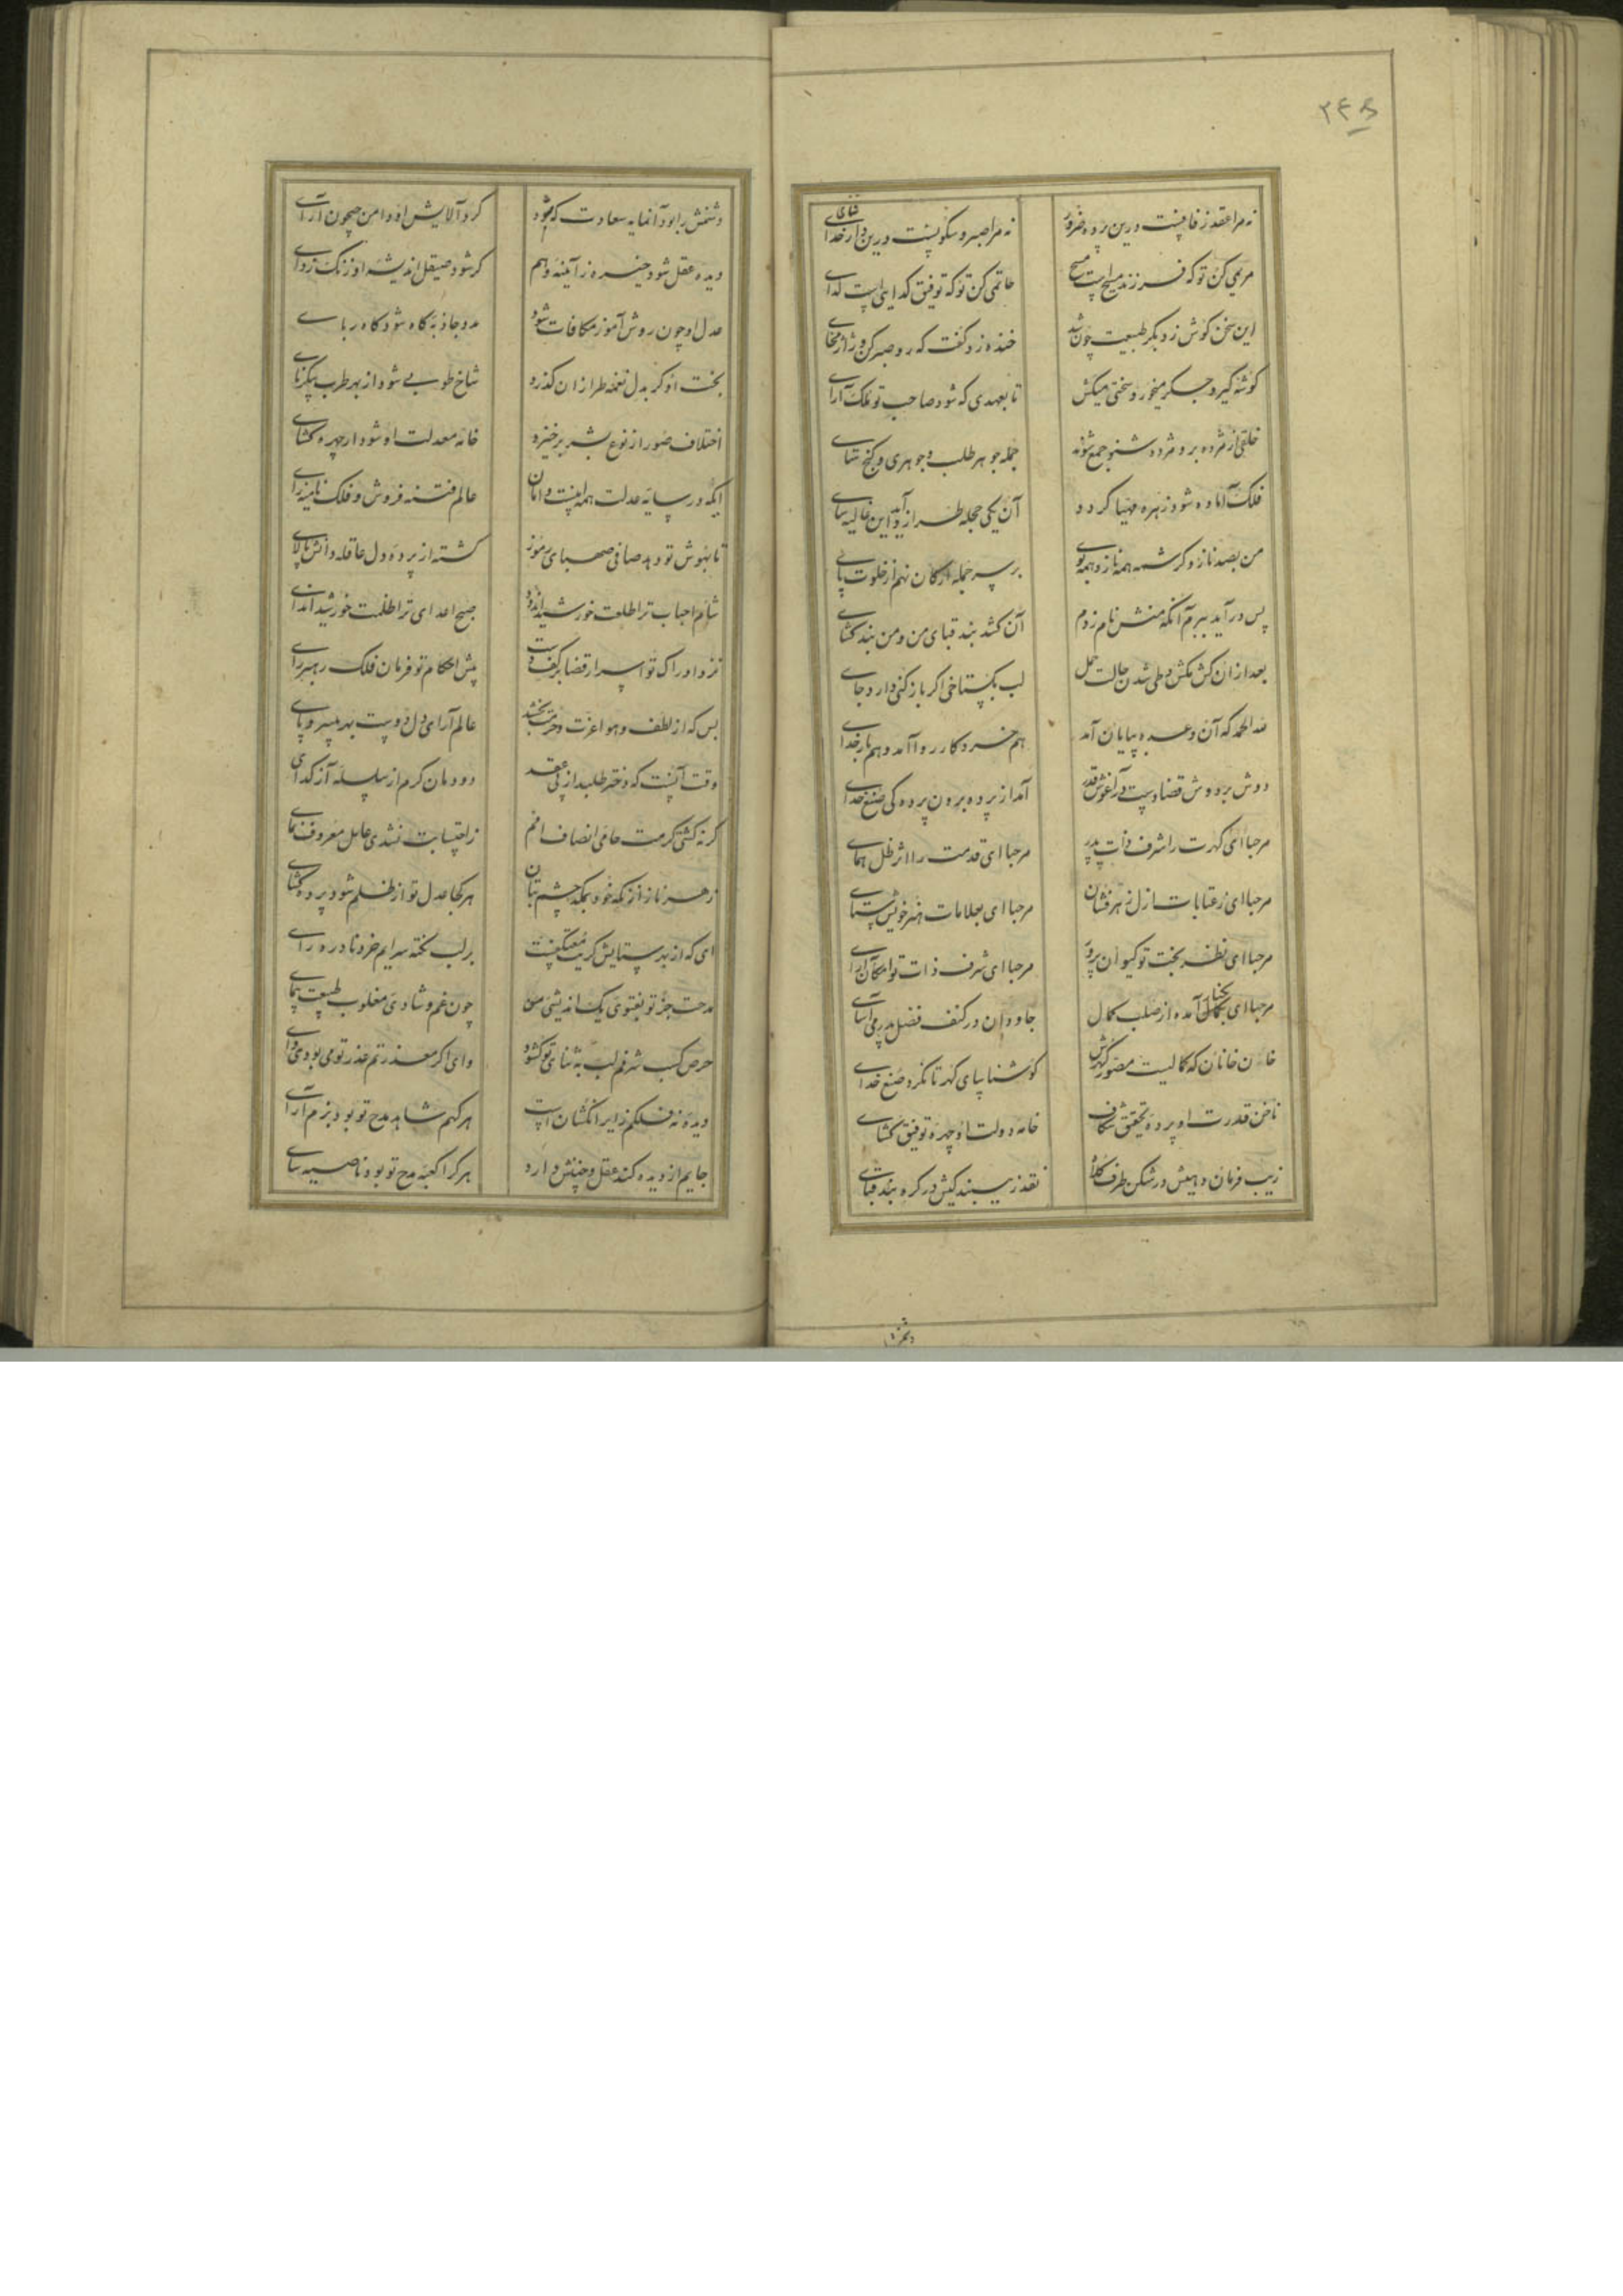 ۲۴۶
نه مرا عقد زفافیست درین پرده ضرور
نه مرا صبر و سکونیست درین دار خدای
مریمی کن تو که فرزند مسیح است مسیح
حاتمی کن تو که توفیق گدایی است گدای
این سخن گوش زد بکر طبیعت چون شد
خنده زد گفت که رو صبر کن و ژاژ مخای
گوشه گیر و جگر میخور و سختی میکش
تا بعهدی که شود صاحب تو ملک آرای
خلقی از مژده بر و مژده شنو جمع شوند
جمله جوهر طلب و جوهری و گنج
فلک آماده شود زهره مهیا گردد
آن یکی حجله طراز آید و این غالیه سای
من بصد ناز و کرشمه همه ناز و همه
بر سر حجله ارکان نهم از خلوت پای
پس در آید ببرم آنکه منش نام زدم
آن کشد بند قبای من و من بند گشای
بعد از آن کش مکش و طی شدن حالت حمل
لب بگستاخی اگر باز کنی دارد جای
لله الحمد که آن وعده بپایان آمد
هم خرد کار روا آمد و هم بار خدای
دوش بر دوش قضا دست در آغوش قدر
آمد از پرده برون پرده کی صنع خدای
مرحبا ای گهرت را شرف ذات پدر
مرحبا ای قدمت را اثر ظل همای
مرحبا ای ز عتابات ازل زهر فشان
مرحبا ای بعلامات هنر خویش ستای
مرحبا ای نظر بخت تو کیوان پرور
مرحبا ای شرف ذات تو امکان آرای
مرحبا ای بکمال آمده از صلب کمال
جاودان در کنف فضل پدر می آسای
خان خانان که کمالیست مصور گهرش
گوشنا بپای گهر تا نگرد صنع خدای
ناخن قدرت او پرده تحقیق شکاف
خامه دولت او چهره توفیق گشای
زیب فرمان دهیش در شکن طرف کلاه
نقد زیبندگیش در گره بند قبای
دشمنش
دشمنش را بود آنمایه سعادت که بود
گرد آلایش او دامن جیحون آرای
دیده عقل شود خیره ز آیینه وهم
گر شود صیقل اندیشه او زنگ زدای
عدل او چون روش آموز مکافات شود
مدد جاذبه کاه شود کاه ربای
بخت او گر بدل نغمه طرازان گذرد
شاخ طوبی شود از بهر طرب پیکر نای
اختلاف صور از نوع بشر برخیزد
خامه معدلت او شود ار چهره گشای
ایکه در سایه عدلت همه امنیست و امان
عالم فتنه فروش و فلک
تا بهوش تو دهد صافی صهبای رموز
گشته از پرده دل عاقله دانش پالای
شام احباب ترا طلعت خورشید اندود
صبح اعدای ترا ظلمت خورشید اندای
نزد ادراک تو اسرار قضا بر کف دست
پیش احکام تو فرمان فلک
بس که از لطف و هوا عزت و حرمت بخشد
عالم آرای دل دوست بهر بی سر و پای
وقت آنست که دختر طلبد از پی عقد
دودمان کرم از سلسله آز گدای
گر نه گشتی کرمت حامی انصاف
ز احتسابت نشدی عامل معروف نمای
زهر ناز از نگه خود بمکد چشم بتان
هر کجا عدل تو از ظلم شود پرده گشای
ای که از بد ستایش گریت معتکفیست
بر لب نکته سرایم خرد نادره رای
مدحت جز تو بفتوی یک اندیشی من
چون غم و شادی مغلوب طبیعت پیمای
حرص کسب شرفم لب به ثنای تو گشود
وای اگر معذرتم عذر تو می بودی وای
دیده نه فلکم زایر انگشتان است
هر گهم شاهد مدح تو بود بزم آرای
جایم از دیده کند عقل و چنینش دارد
هر که را کعبه مدح تو بود ناصیه سای